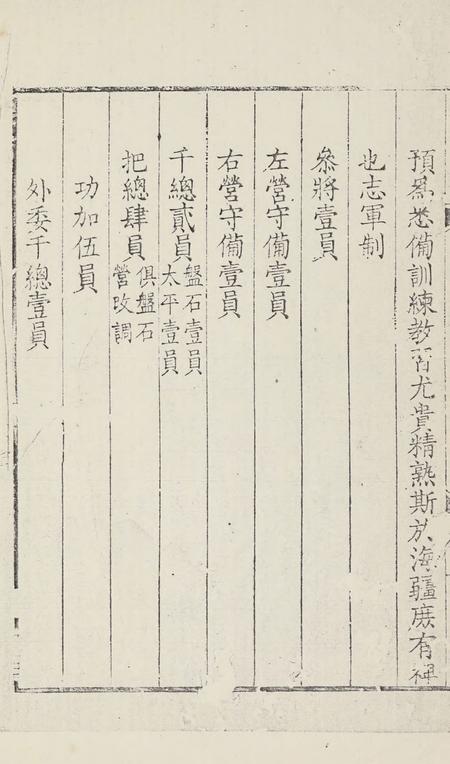 預爲悉備訓練教習尤貴精熟斯於海疆庶有裨
也志軍制
叅將壹員
左營守備壹員
右營守備壹員
千總貳員盤石壹員
太平壹員
把總肆員俱盤石
營改調
功加伍員
外委千總壹員